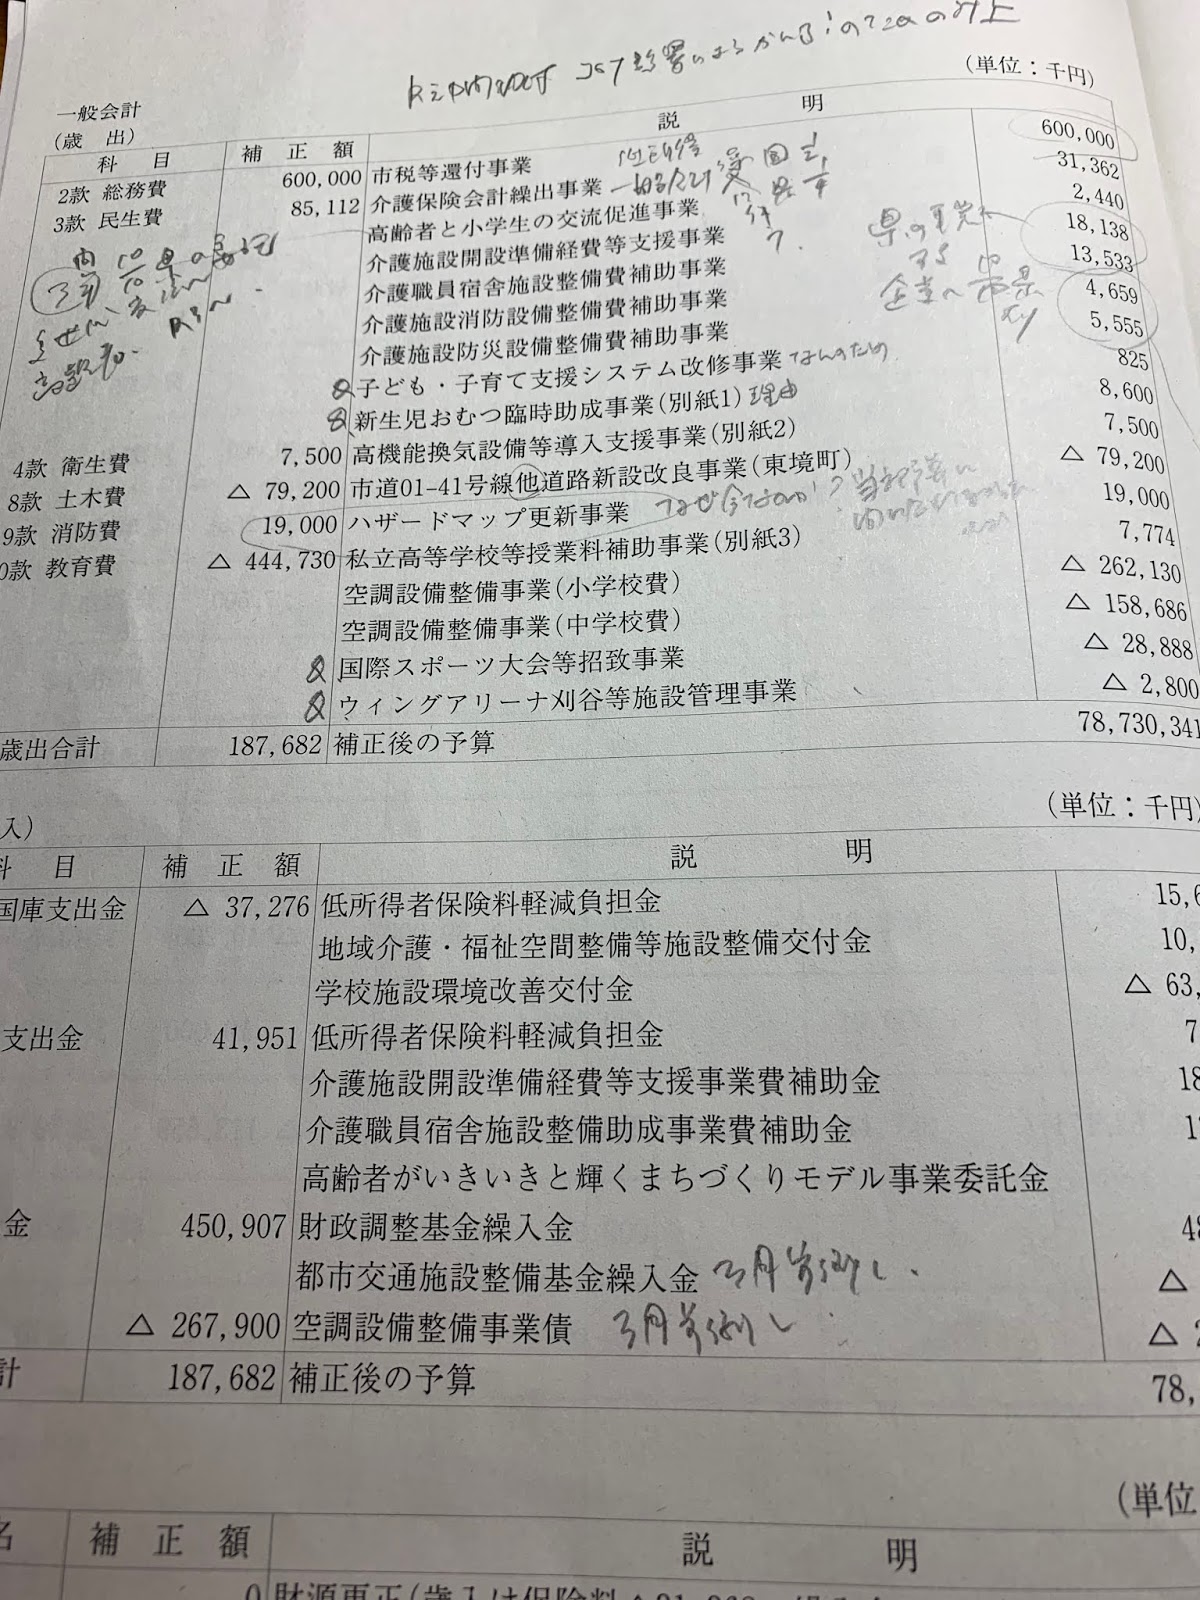 (単位：千円)
一般会計
(歳　出)
科　目　補　正　額　説　明
2款 総務費　600,000　市税等還付事業　600,000
3款 民生費　85,112　介護保険会計繰出事業　31,362
高齢者と小学生の交流促進事業　2,440
介護施設開設準備経費等支援事業　18,138
介護職員宿舎施設整備費補助事業　13,533
介護施設消防設備整備費補助事業　4,659
介護施設防災設備整備費補助事業　5,555
子ども・子育て支援システム改修事業　なんのため　825
新生児おむつ臨時助成事業(別紙1)　理由　8,600
4款 衛生費　7,500　高機能換気設備等導入支援事業(別紙2)　7,500
8款 土木費　△ 79,200　市道01-41号線他道路新設改良事業(東境町)　△ 79,200
9款 消防費　19,000　ハザードマップ更新事業　19,000
0款 教育費　△ 444,730　私立高等学校等授業料補助事業(別紙3)　7,774
空調設備整備事業(小学校費)　△ 262,130
空調設備整備事業(中学校費)　△ 158,686
国際スポーツ大会等招致事業　△ 28,888
ウィングアリーナ刈谷等施設管理事業　△ 2,800
歳出合計　187,682　補正後の予算　78,730,341
入)　(単位：千円)
科　目　補　正　額　説　明
国庫支出金　△ 37,276　低所得者保険料軽減負担金　15,6
地域介護・福祉空間整備等施設整備交付金　10,
学校施設環境改善交付金　△ 63,
支出金　41,951　低所得者保険料軽減負担金　7
介護施設開設準備経費等支援事業費補助金　18
介護職員宿舎施設整備助成事業費補助金　1
高齢者がいきいきと輝くまちづくりモデル事業委託金
金　450,907　財政調整基金繰入金　48
都市交通施設整備基金繰入金　3月前倒し　△
△ 267,900　空調設備整備事業債　3月前倒し　△ 2
計　187,682　補正後の予算　78,
(単位
名　補　正　額　説　明
0　財源更正(歳入は保険料